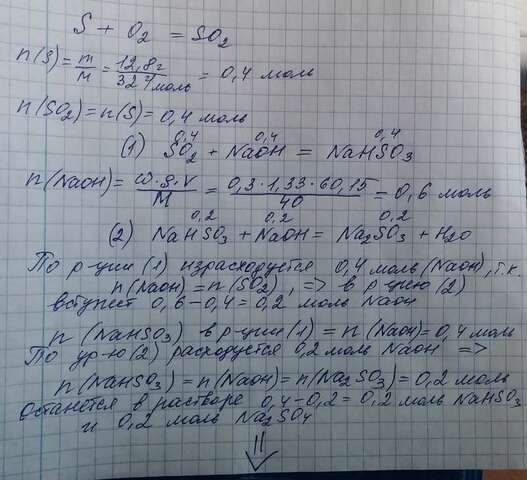 S + O₂ = SO₂
n(S) = m/M = 12,8г/32 г/моль = 0,4 моль
n(SO₂) = n(S) = 0,4 моль
0,4 0,4 0,4
(1) SO₂ + NaOH = NaHSO₃
n(NaOH) = ω·ρ·V/M = 0,3·1,33·60,15/40 = 0,6 моль
0,2 0,2 0,2
(2) NaHSO₃ + NaOH = Na₂SO₃ + H₂O
По р-ции (1) израсходуется 0,4 моль (NaOH), т.к.
n(NaOH) = n(SO₂), => в р-цию (2)
вступает 0,6-0,4=0,2 моль NaOH
n (NaHSO₃) в р-ции (1) = n(NaOH)=0,4 моль
По ур-ю (2) расходуется 0,2 моль NaOH =>
n(NaHSO₃) = n(NaOH) = n(Na₂SO₃) = 0,2 моль
Останется в растворе 0,4-0,2=0,2 моль NaHSO₃
и 0,2 моль Na₂SO₄